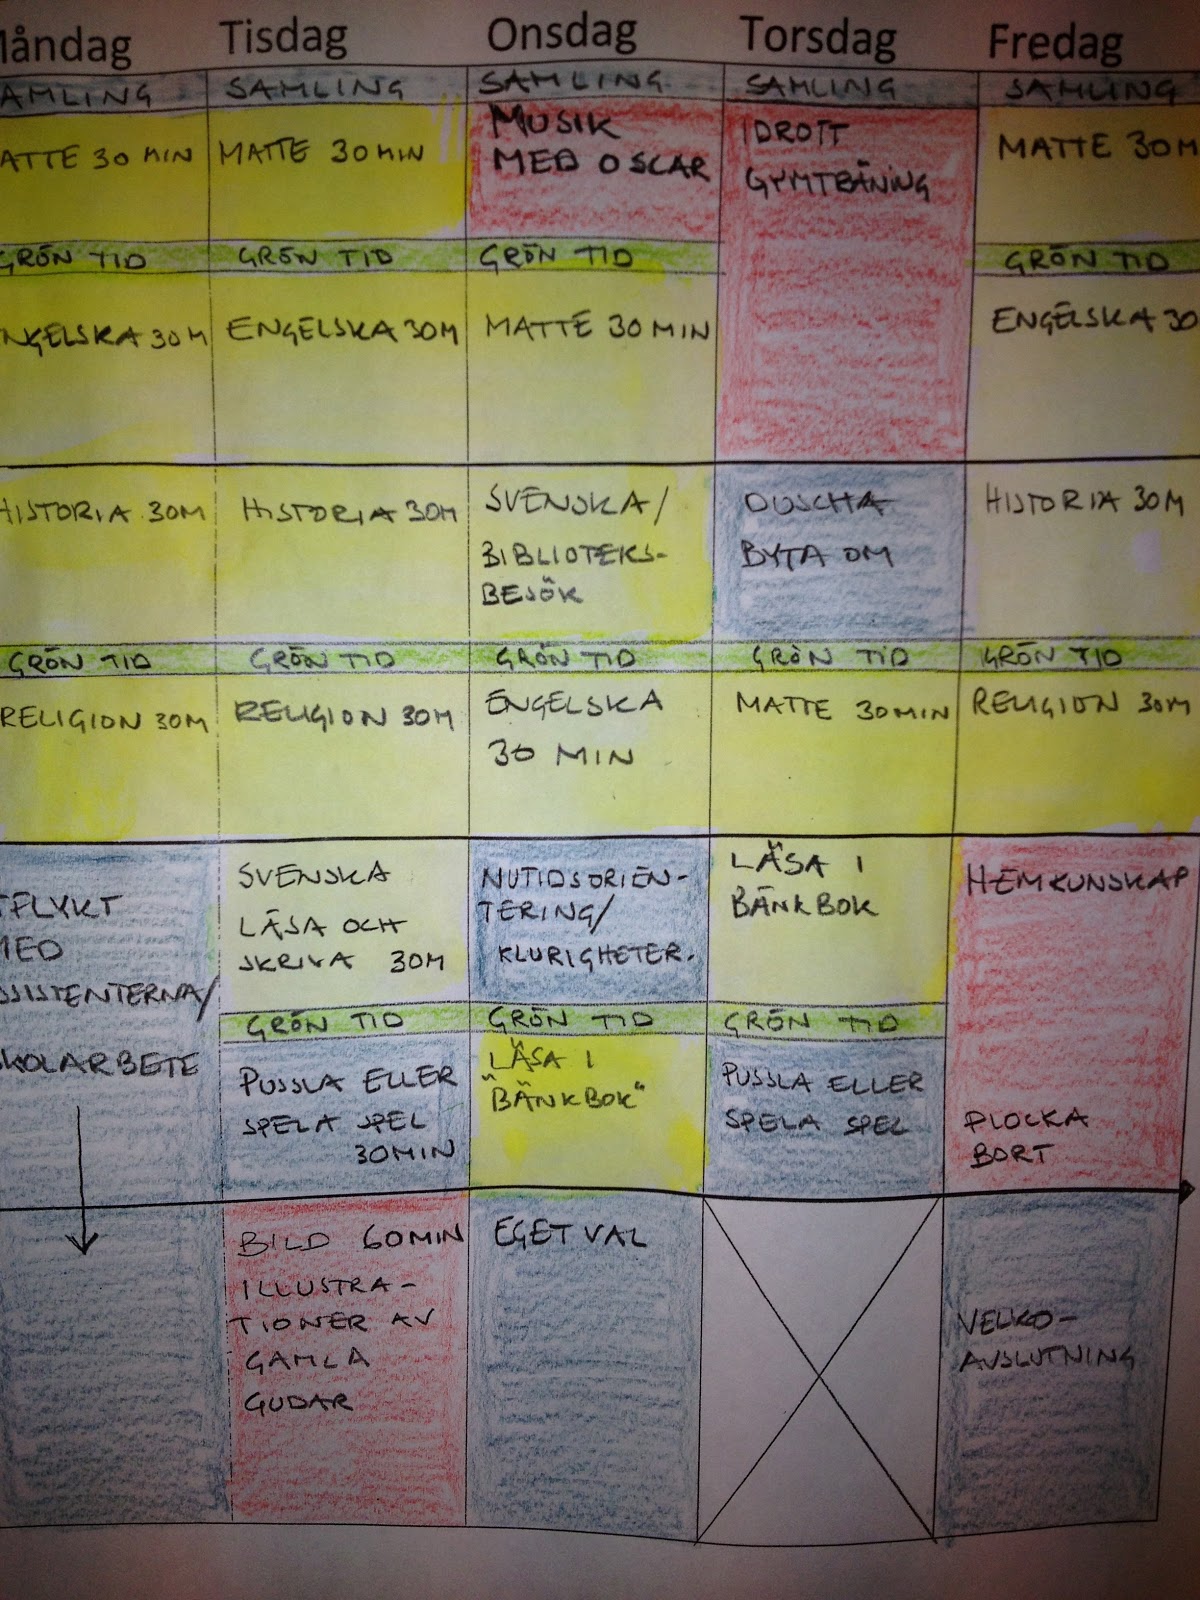 åndag
Tisdag
Onsdag
Torsdag
Fredag
AMLING
SAMLING
SAMLING
SAMLING
SAMLING
ATTE 30 MIN
MATTE 30MIN
MUSIK
MED OSCAR
IDROTT
GYMTRÄNING
MATTE 30M
GRÖN TID
GRÖN TID
GRÖN TID
GRÖN TID
NGELSKA 30M
ENGELSKA 30M
MATTE 30MIN
ENGELSKA 30
HISTORIA 30M
HISTORIA 30M
SVENSKA/
BIBLIOTEKS-
BESÖK
DUSCHA
BYTA OM
HISTORIA 30M
GRÖN TID
GRÖN TID
GRÖN TID
GRÖN TID
GRÖN TID
RELIGION 30M
RELIGION 30M
ENGELSKA
30 MIN
MATTE 30MIN
RELIGION 30M
TFLYKT
MED
SSISTENTERNA/
KOLARBETE
SVENSKA
LÄSA OCH
SKRIVA 30M
NUTIDSORIEN-
TERING/
KLURIGHETER.
LÄSA I
BÄNKBOK
HEMKUNSKAP
PLOCKA
BORT
GRÖN TID
GRÖN TID
GRÖN TID
PUSSLA ELLER
SPELA SPEL
30MIN
LÄSA I
"BÄNKBOK"
PUSSLA ELLER
SPELA SPEL
BILD 60MIN
ILLUSTRA-
TIONER AV
GAMLA
GUDAR
EGET VAL
VECKO-
AVSLUTNING